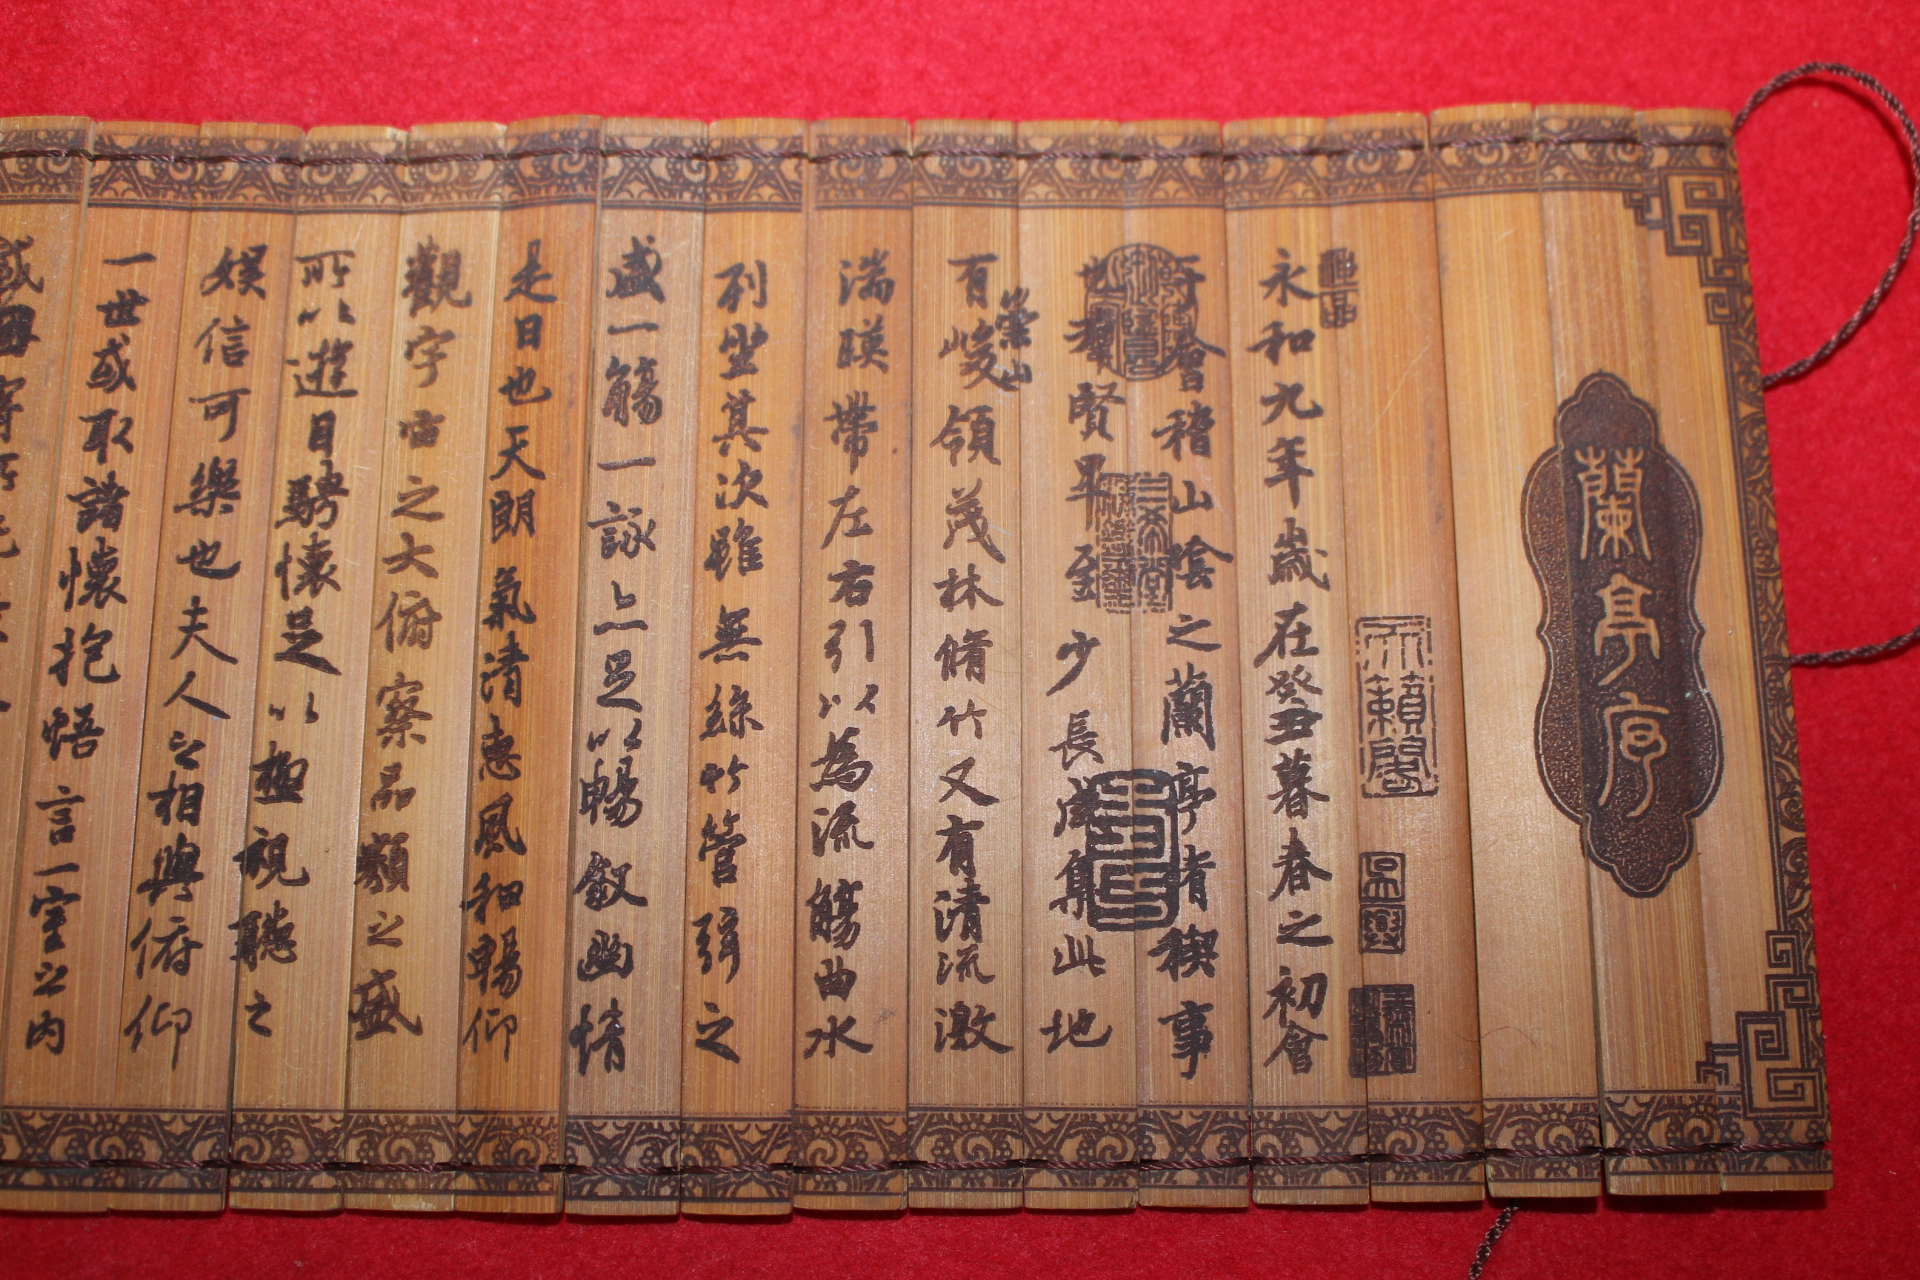 蘭亭序
天籟閣
永和九年歲在癸丑暮春之初會
于會稽山陰之蘭亭脩禊事
也羣賢畢至少長咸集此地
崇山
有峻領茂林脩竹又有清流激
湍暎帶左右引以為流觴曲水
列坐其次雖無絲竹管弦之
盛一觴一詠亦足以暢敘幽情
是日也天朗氣清惠風和暢仰
觀宇宙之大俯察品類之盛
所以遊目騁懷足以極視聽之
娛信可樂也夫人之相與俯仰
一世或取諸懷抱悟言一室之內